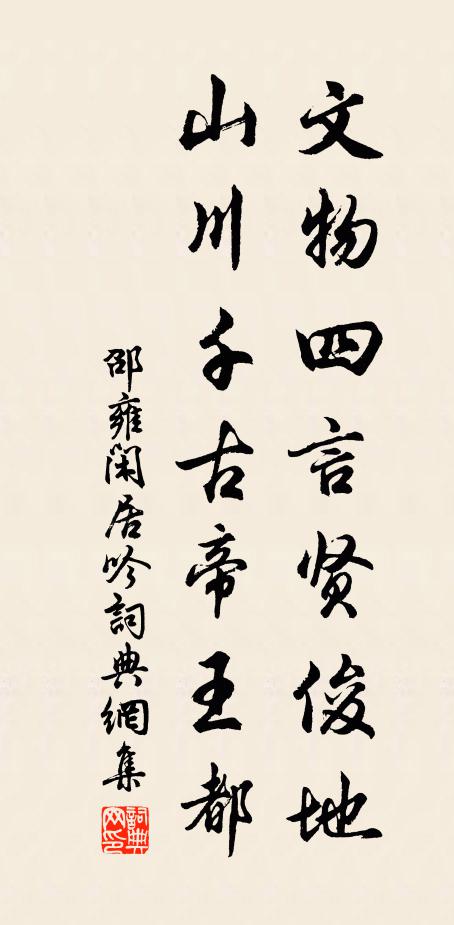 文物四言贤俊地
山川千古帝王都
邵雍閑居吟詞典網集
詞典網印